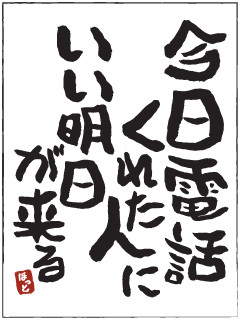 今日電話
くれた人に
いい明日
が来る
ほっと